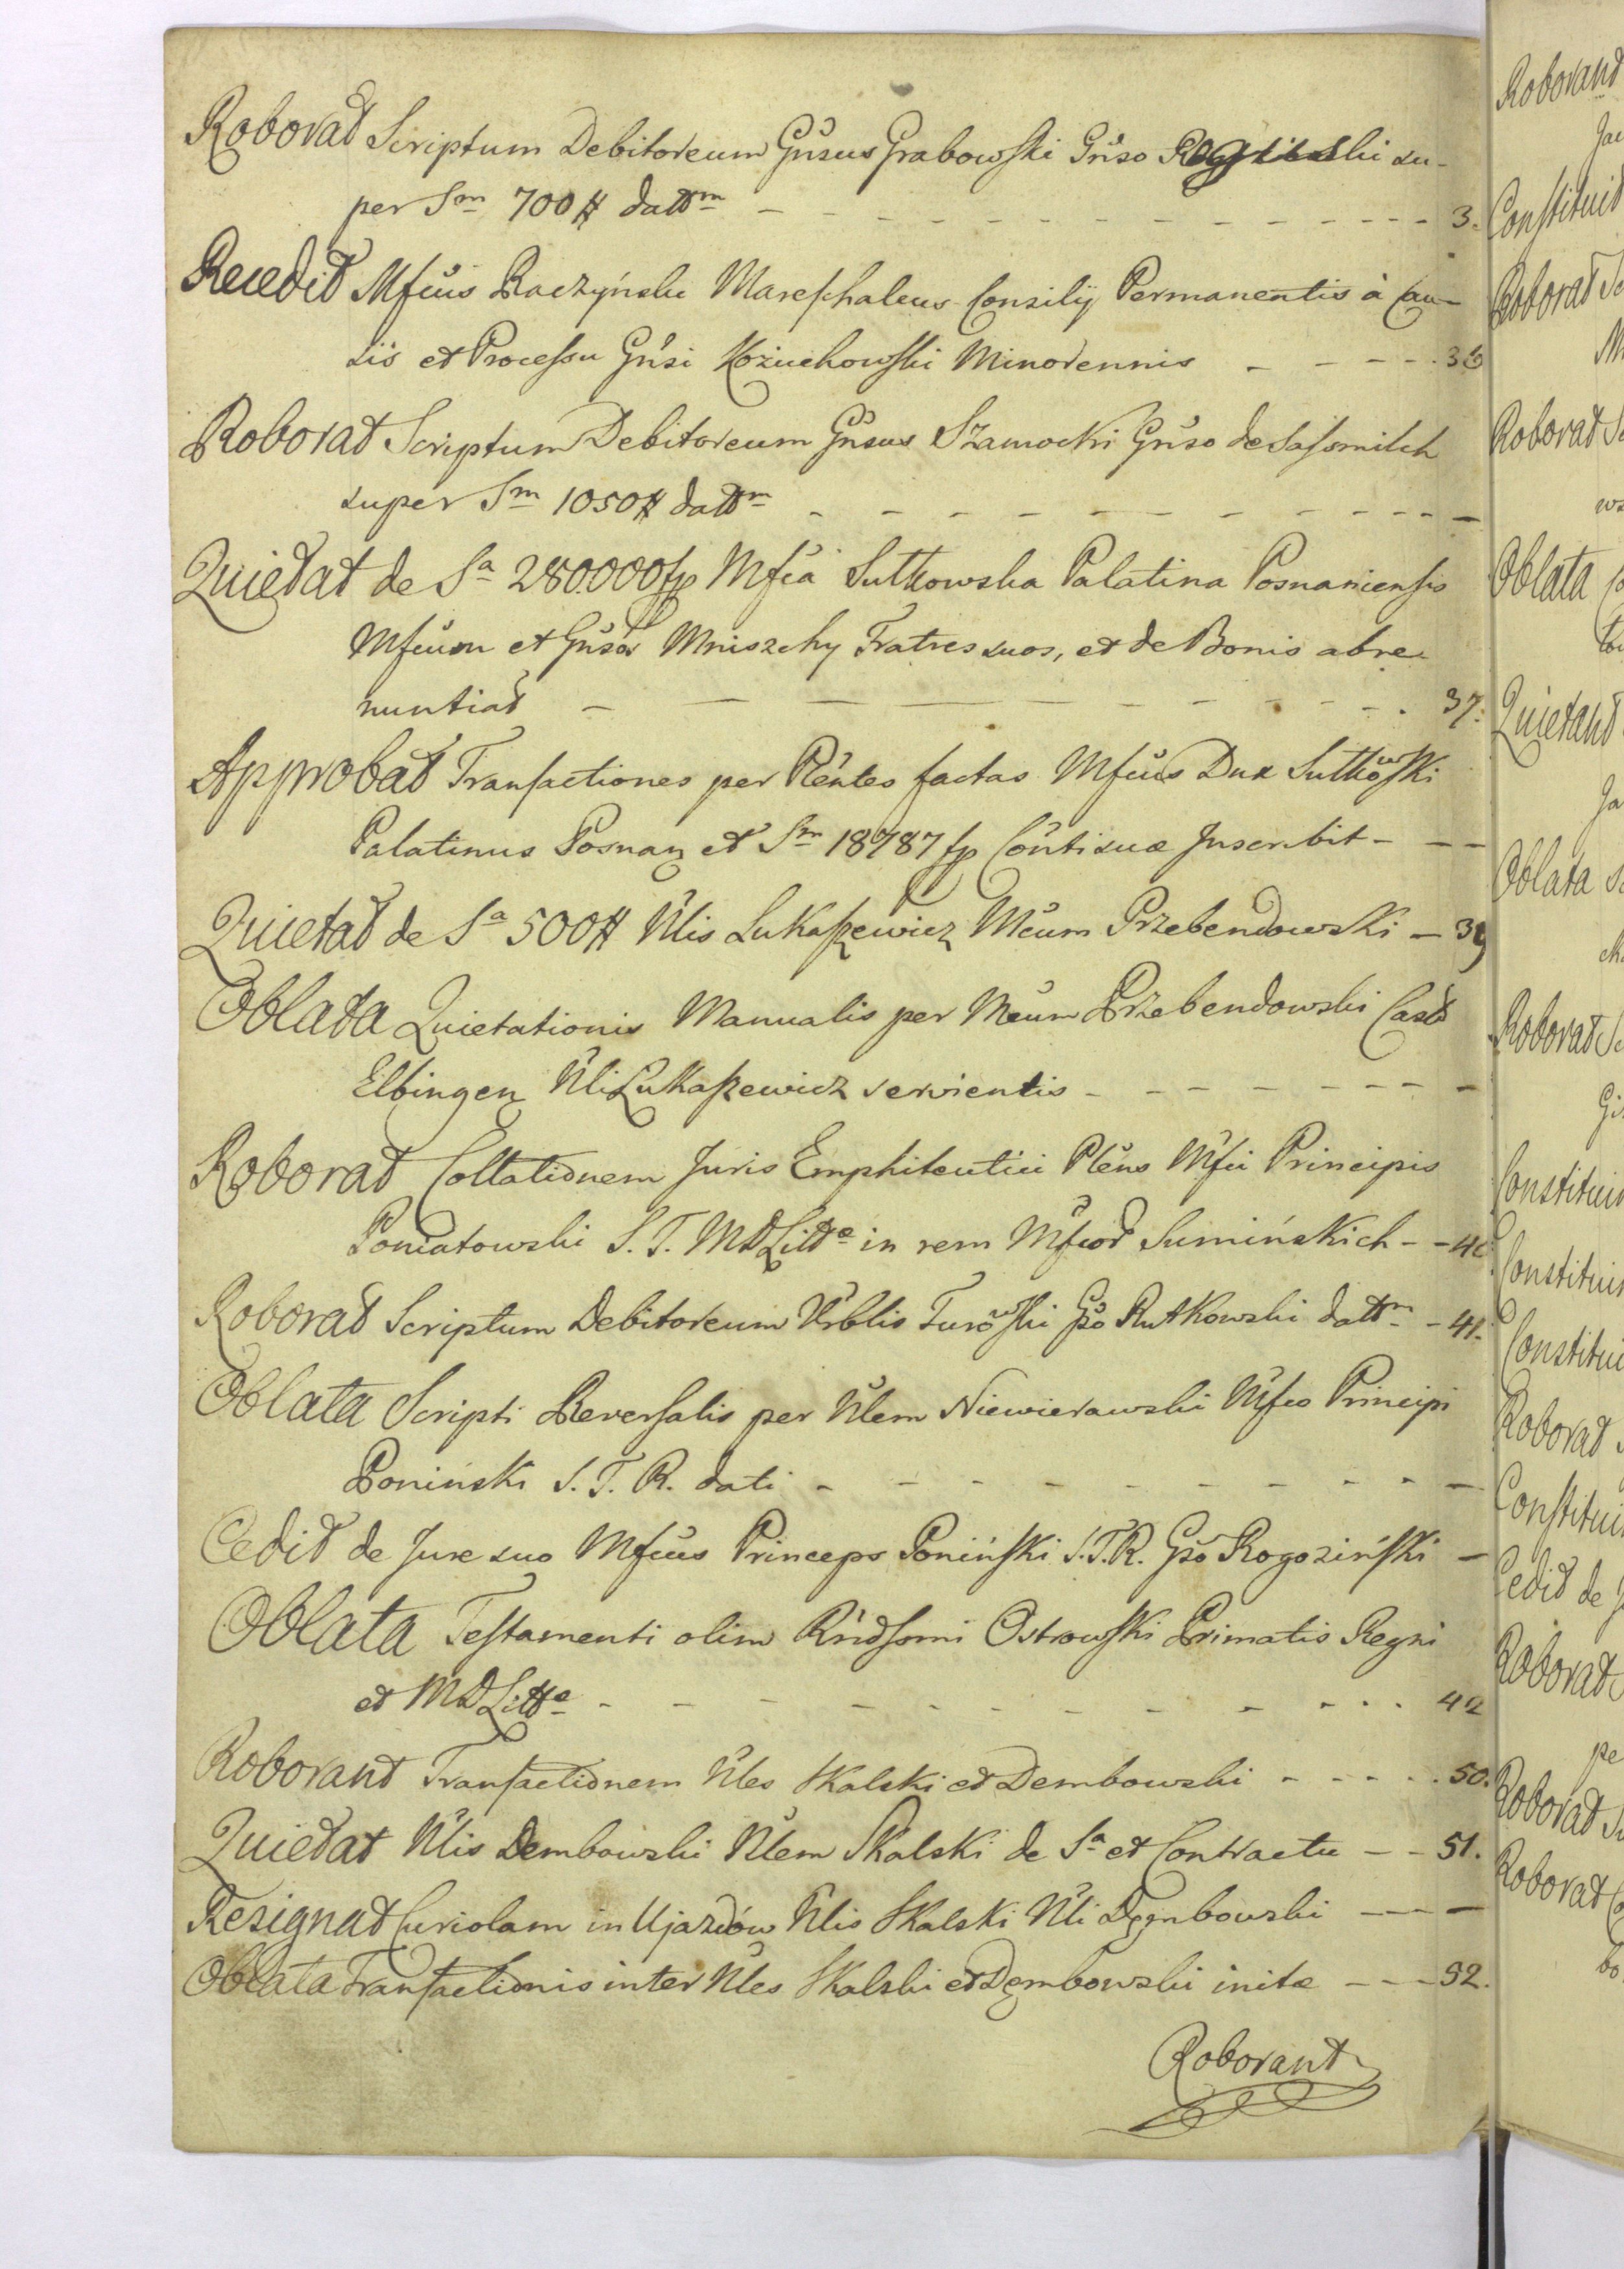 Roborat Scriptum Debitoreum Gnsus Grabowski Gnso su-
per Sm 700 # dattm - - - 3.
Recedit Mfcus Raczyński Mareschalcus Consilij Permanentis à Cau-
sis et Processu Gnsi Kożuchowski Minorennis - - - 36
Roborat Scriptum Debitoreum Gnsus Szamocki Gnso de Sassmilch
super Sm 1050 # dattm - - -
Quietat de Sa 280000 fp Mfca Sutkowska Palatina Posnaniensis
Mfcum et Gnsos Mniszchy Fratres suos, et de Bonis abre-
nuntiat - - - 37.
Approbat Transactiones per Plentes factas Mfcus Dux Sutkowski
Palatinus Posnan et Sm 18787 fp Contisuæ Inscribit - - -
Quietat de Sa 500 # Nlis Lukaszewicz Mcum Przebendowski - 39
Oblata Quietationis Manualis per Mcum Przebendowski Cast
Elbingen Nli Lukaszewicz servientis - - -
Roborat Collationem Juris Emphiteutici Plens Mfci Principis
Poniatowski S. T. MDLitt in rem Mfcor Sumińskich - - 40
Roborat Scriptum Debitoreum Nrblis Turowski Gso Rutkowski dattm - 41.
Oblata Scripti Reversalis per Nlem Niewierawski Mfco Principi
Poniński S. T. R. dati - - -
Cedit de Jure suo Mfcus Princeps Poniński S. T. R. Gso Rogoziński -
Oblata Testamenti olim Rndssmi Ostrowski Primatis Regni
et MDLitt - - - 42
Roborant Transactionem Nles Skalski et Dembowski - - - 50.
Quietat Nlis Dembowski Nlem Skalski de Sa et Contractu - - 51.
Resignat Curiolam in Ujazdów Nlis Skalski Nli Dembowski - - -
Oblata Transactionis inter Nles Skalski et Dembowski initæ - - - 52.
Roborant
Roborant
Constituit
Roborat
Roborat
Oblata
Quietant
Oblata
Roborat
Constituit
Constituit
Constituit
Roborat
Constituit
Cedit de
Roborat
Roborat
Roborat